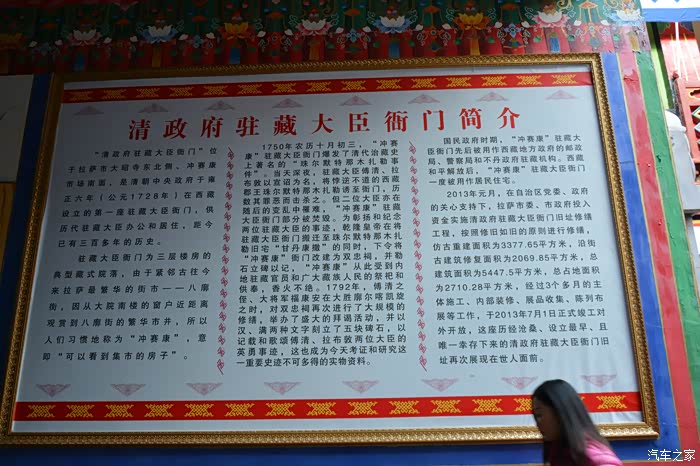 清政府驻藏大臣衙门简介
“清政府驻藏大臣衙门”位
于拉萨市大昭寺东北侧、冲赛康
市场南面，是清朝中央政府于雍
正六年（公元1728年）在西藏
设立的第一座驻藏大臣衙门，供
历代驻藏大臣办公和居住，距今
已有三百多年的历史。
驻藏大臣衙门为三层楼房的
典型藏式院落，由于紧邻古往今
来拉萨最繁华的街市——八廓
街，因从大院南楼的窗户近距离
观赏到八廓街的繁华市井，所以
人们习惯地称为“冲赛康”，意
即“可以看到集市的房子”。
1750年农历十月初三，“冲赛
康”驻藏大臣衙门爆发了清代治藏史
上著名的“珠尔默特那木扎勒事
件”。当天深夜，驻藏大臣傅清、拉
布敦以宣诏敕为名，将悖逆不道的西藏
郡王珠尔默特那木扎勒诱至衙门，历
数其罪恶而击杀之。但二位大臣亦在
随后的变乱中罹难，“冲赛康”驻藏
大臣衙门部分被焚毁。为彰扬和纪念
两位驻藏大臣的事迹，乾隆皇帝在将
驻藏大臣衙门搬迁至珠尔默特那木扎
勒旧宅“甘丹康撒”的同时，下令将
“冲赛康”衙门改建为双忠祠，并勒
石立碑以记，“冲赛康”从此受到内
地驻藏官员和广大藏族人民的祭祀和
供奉，香火不绝。1792年，傅清之
侄、大将军福康安在大胜廓尔喀凯旋
之时，对双忠祠再次进行了大规模的
修缮，举办了盛大的拜谒活动，并以
汉、满两种文字刻立了五块碑石，以
记载和歌颂傅清、拉布敦两位大臣的
英勇事迹，这也成为今天考证和研究这
一重要史迹不可多得的实物资料。
国民政府时期，“冲赛康”驻藏大
臣衙门先后被用作西藏地方政府的邮政
局、警察局和不丹政府驻藏机构。西藏
和平解放后，“冲赛康”驻藏大臣衙门
一度被用作居民住宅。
2013年元月，在自治区党委、政府
的关心支持下，拉萨市委、市政府投入
资金实施清政府驻藏大臣衙门旧址修缮
工程，按照修旧如旧的原则进行修缮，
仿古重建面积为3377.65平方米，沿街
古建筑修复面积为2069.85平方米，总
建筑面积为5447.5平方米，总占地面积
为2710.28平方米，经过3个多月的主
体施工、内部装修、展品收集、陈列布
展等工作，于2013年7月1日正式竣工对
外开放，这座历经沧桑、设立最早、且
唯一幸存下来的清政府驻藏大臣衙门旧
址再次展现在世人面前。
汽车之家